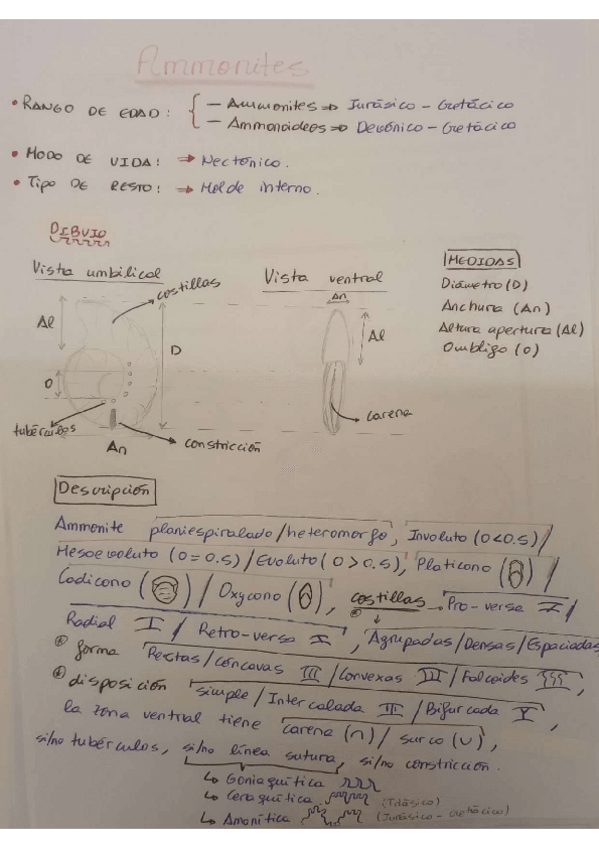 Ammonites
• RANGO DE EDAD: { — Ammonites ⇒ Jurásico - Cretácico
— Ammonoideos ⇒ Devónico - Cretácico
• MODO DE VIDA: ⇒ Nectónico.
• TIPO DE RESTO: ⇒ Molde interno.
DIBUJO
Vista umbilical
Vista ventral
MEDIDAS
Diámetro (D)
Anchura (An)
Altura apertura (Al)
Ombligo (O)
costillas
An
Al
D
Al
O
carena
tubérculos
constricción
An
Descripción
Ammonite planiespiralado/heteromorfo, Involuto (O<0.5)/
Mesoevoluto (O=0.5)/Evoluto (O>0.5), Platicono ( )/
Cadicono ( ) / Oxycono ( ), costillas Pro-versa /
Radial / Retro-versa , Agrupadas/Densas/Espaciadas
* forma Rectas/cóncavas /Convexas /Falcoides ,
* disposición simple/Intercalada /Bifurcada ,
la zona ventral tiene carena (∩)/ surco (∪),
si/no tubérculos, si/no línea sutura, si/no constricción.
↳ Goniaquítica
↳ Ceraquítica (Triásico)
↳ Amonítica (Jurásico-cretácico)